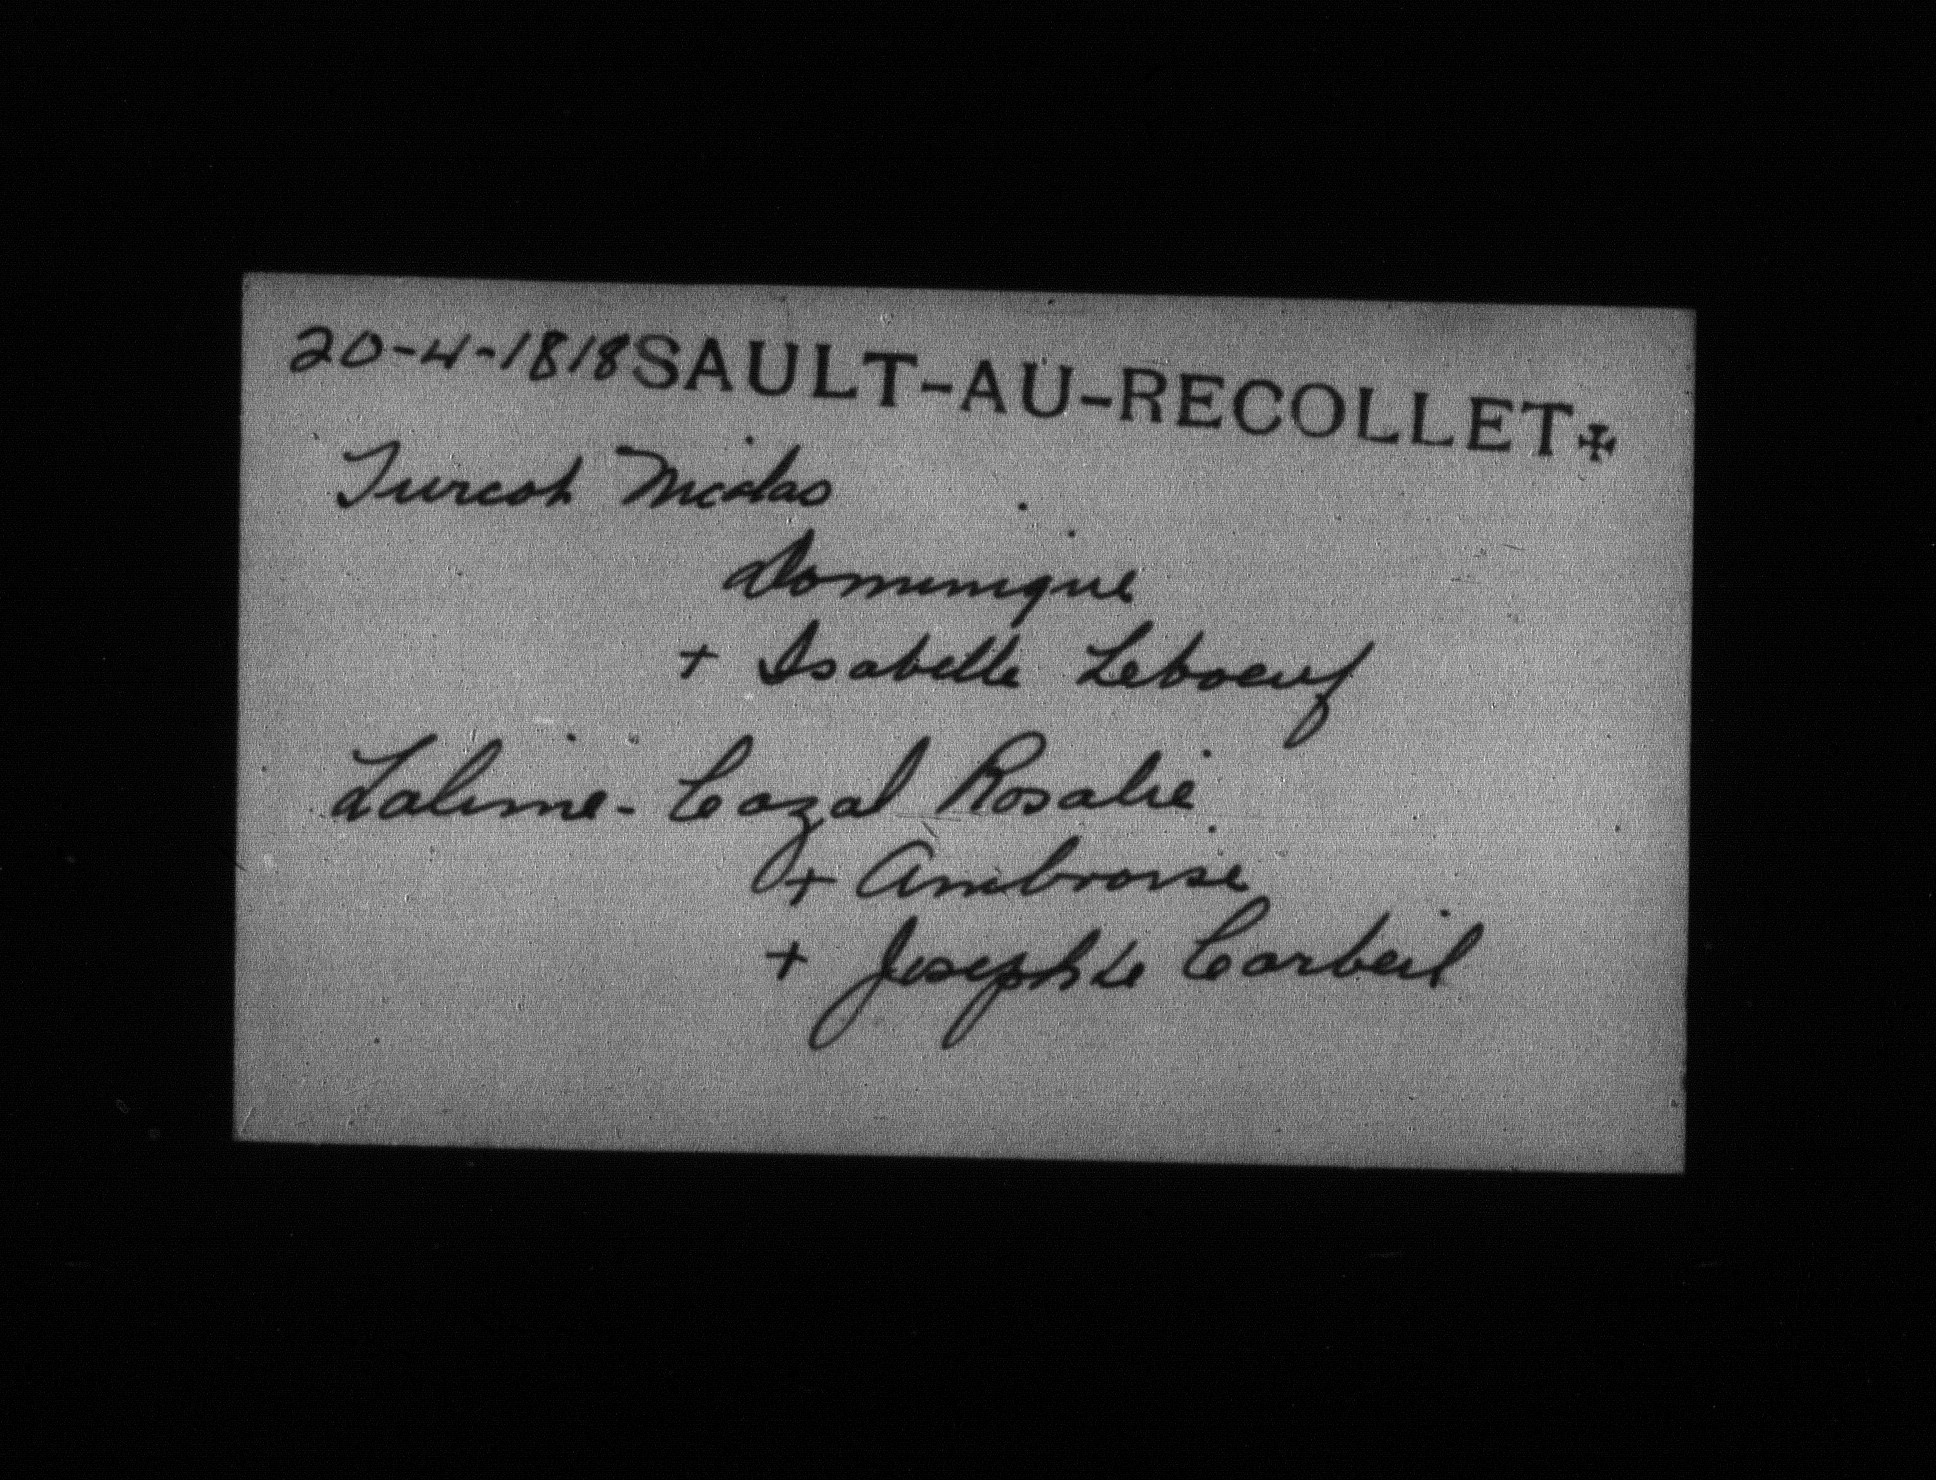 20-4-1818 SAULT-AU-RECOLLET✠
Turcot Nicolas
Dominique
+ Isabelle Leboeuf
Lalime-Cazal Rosalie
+ Ambroise
+ Josephte Corbeil